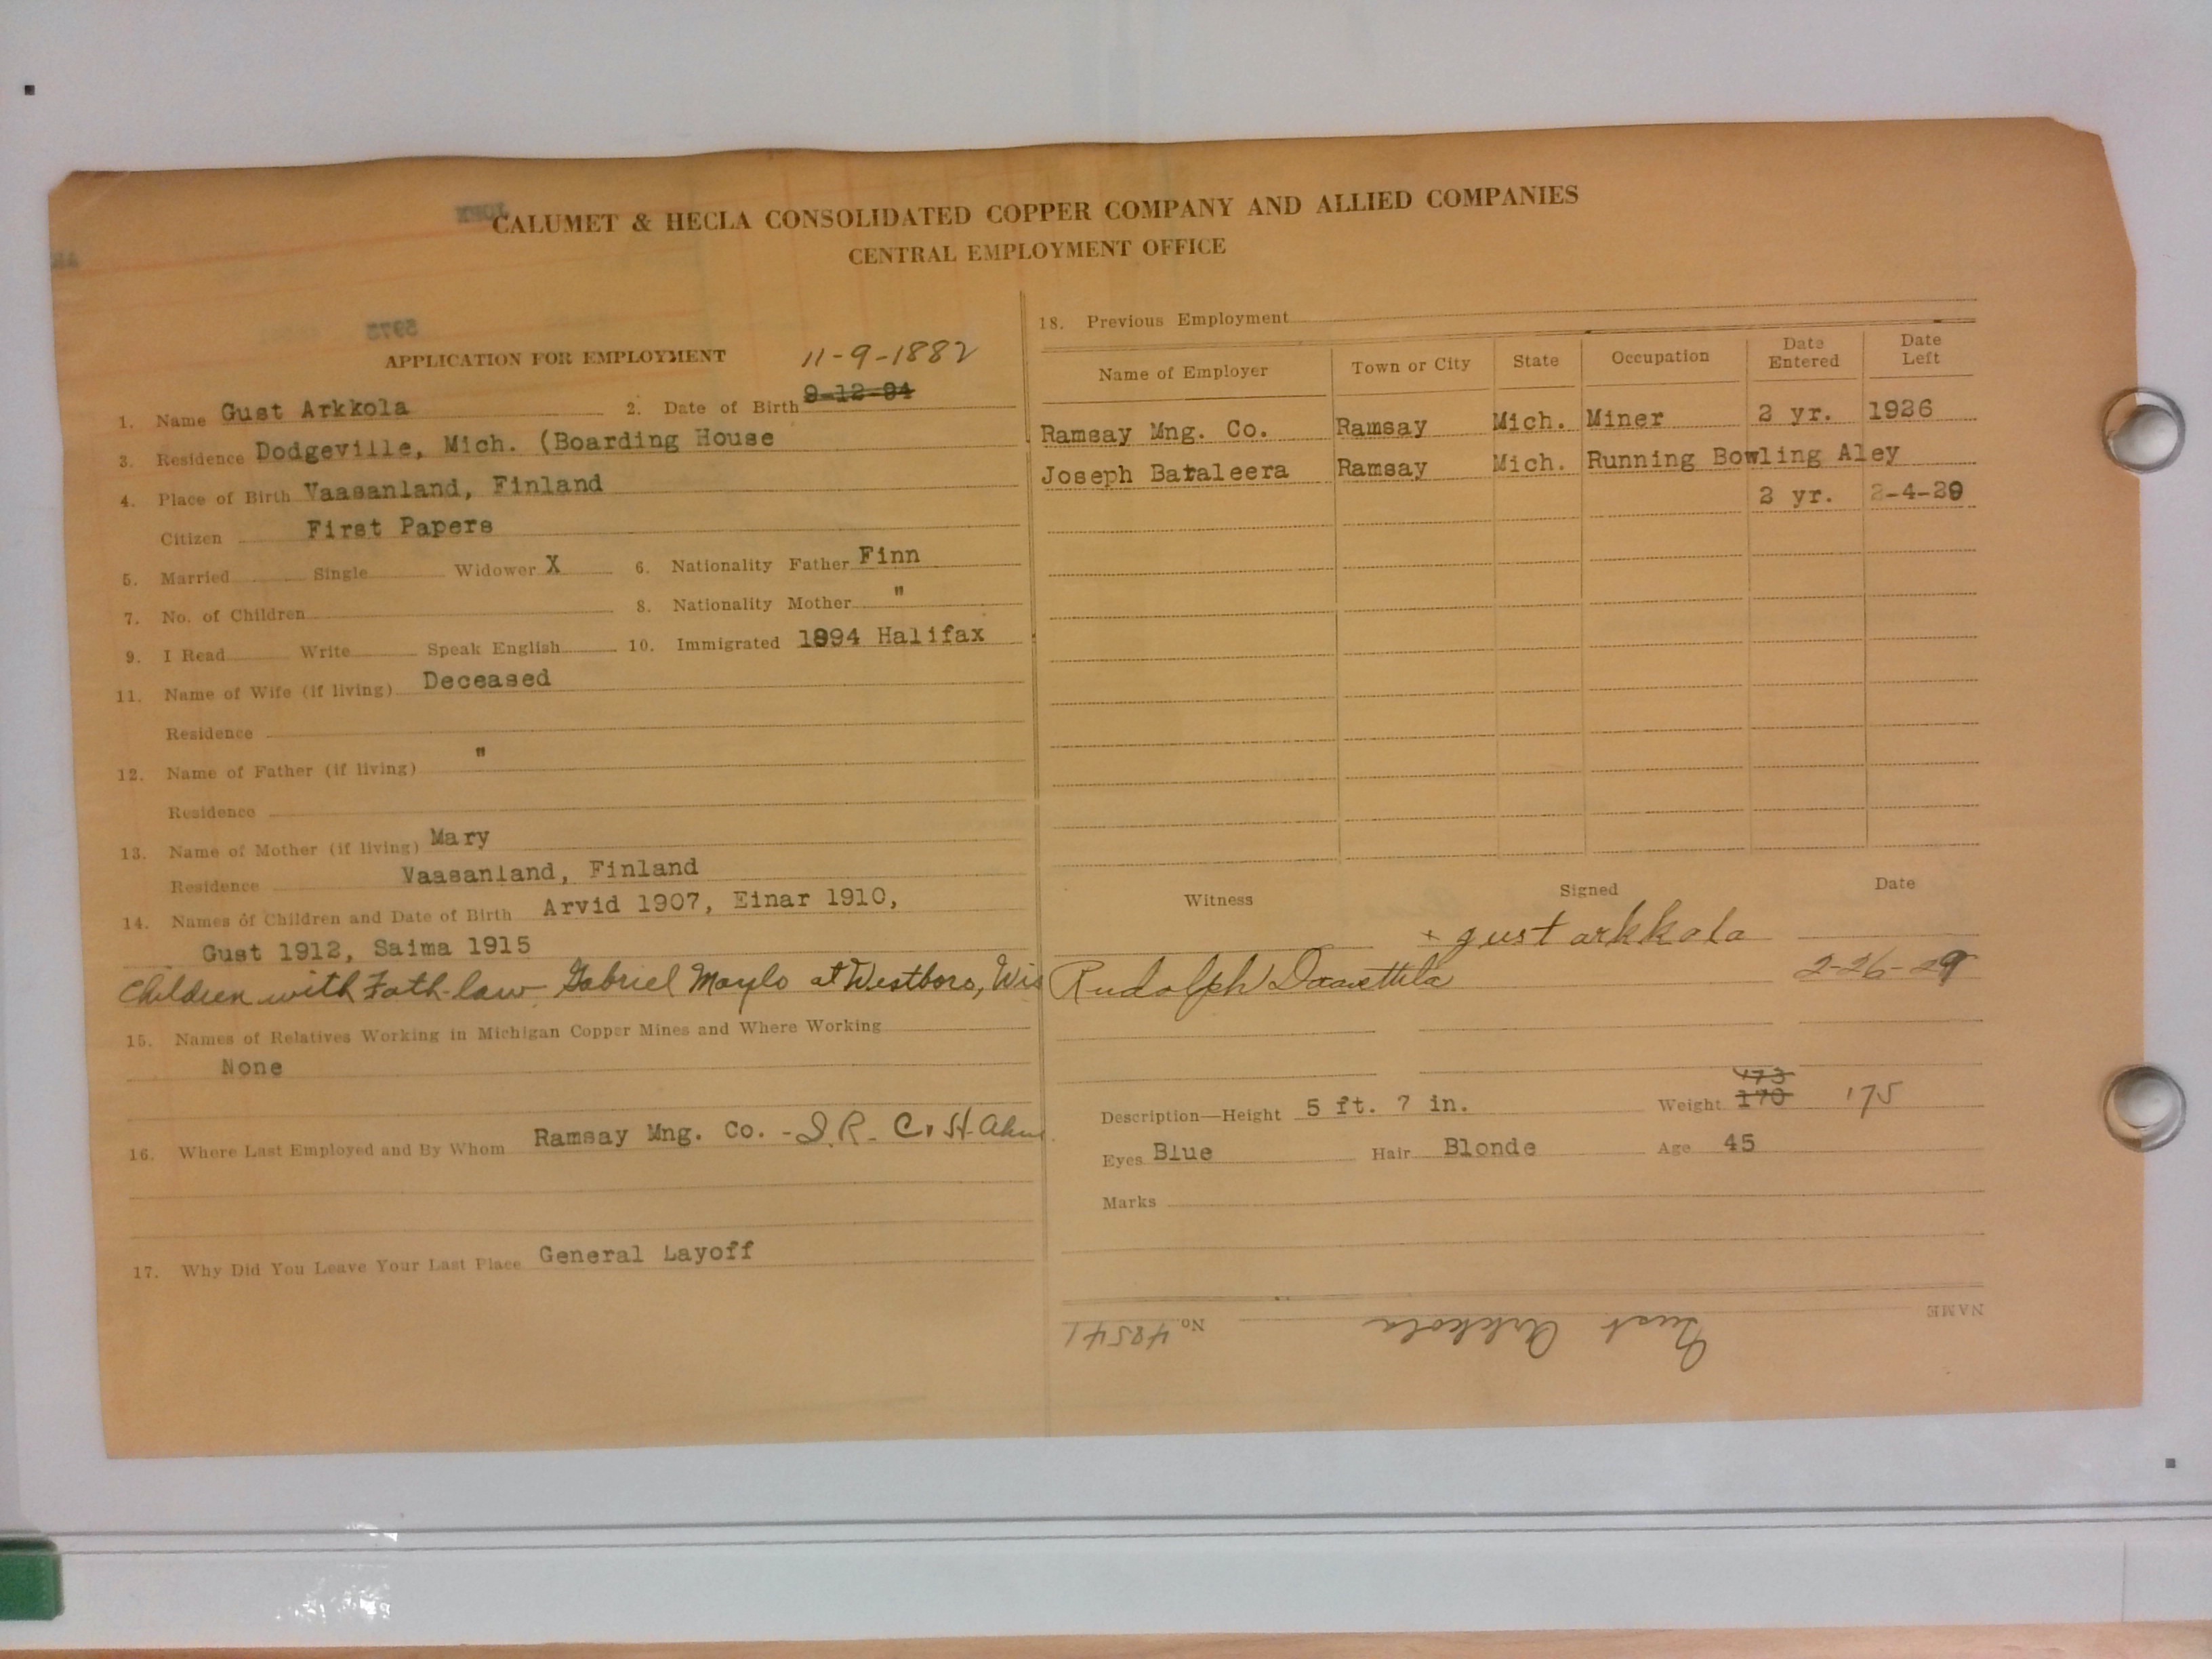 CALUMET & HECLA CONSOLIDATED COPPER COMPANY AND ALLIED COMPANIES
CENTRAL EMPLOYMENT OFFICE
APPLICATION FOR EMPLOYMENT 11-9-1882
1. Name Gust Arkkola 2. Date of Birth 9-12-84
3. Residence Dodgeville, Mich. (Boarding House
4. Place of Birth Vaasanland, Finland
Citizen First Papers
5. Married Single Widower X 6. Nationality Father Finn
7. No. of Children 8. Nationality Mother "
9. I Read Write Speak English 10. Immigrated 1894 Halifax
11. Name of Wife (if living) Deceased
Residence
12. Name of Father (if living) "
Residence
13. Name of Mother (if living) Mary
Residence Vaasanland, Finland
14. Names of Children and Date of Birth Arvid 1907, Einar 1910,
Gust 1912, Saima 1915
Children with Fath-law Gabriel Maylo at Westboro, Wis
15. Names of Relatives Working in Michigan Copper Mines and Where Working
None
16. Where Last Employed and By Whom Ramsay Mng. Co. - I.R. C. & H.
17. Why Did You Leave Your Last Place General Layoff
18. Previous Employment
Name of Employer Town or City State Occupation Date Entered Date Left
Ramsay Mng. Co. Ramsay Mich. Miner 2 yr. 1926
Joseph Bataleera Ramsay Mich. Running Bowling Aley
2 yr. 2-4-29
Witness Signed Date
x gust arkkola
Rudolph 2-26-29
Description—Height 5 ft. 7 in. Weight 173 170 175
Eyes Blue Hair Blonde Age 45
Marks
NAME Gust Arkkola No 48541
5973